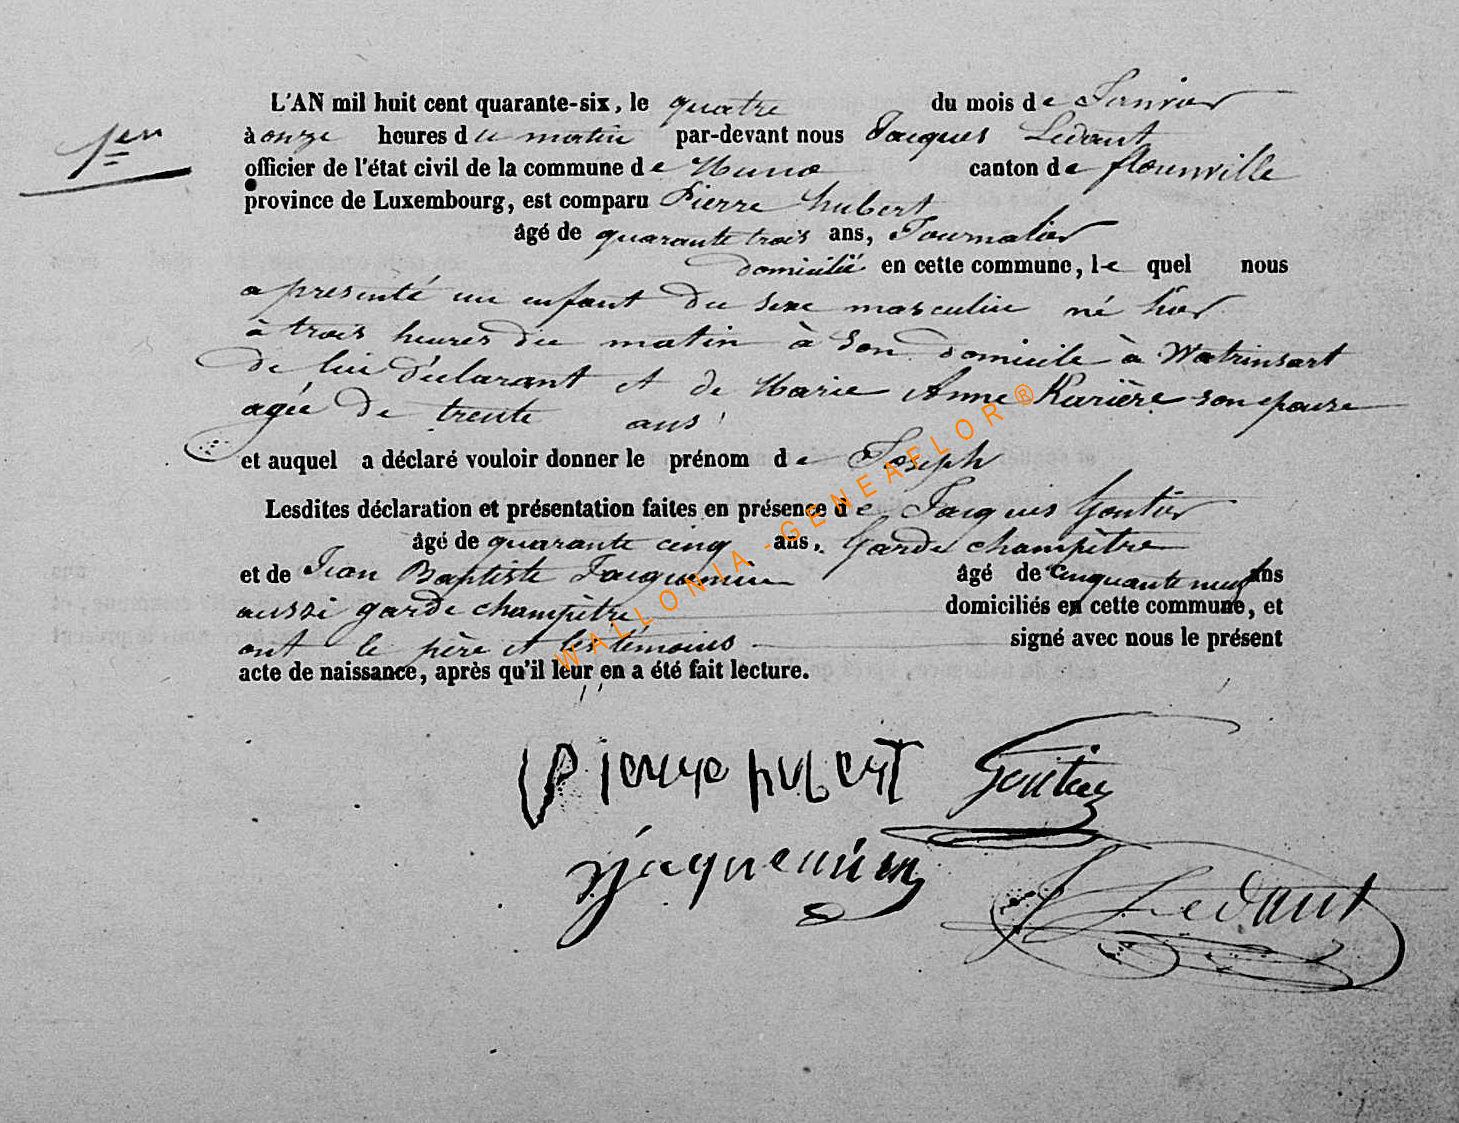 1er
L'AN mil huit cent quarante-six, le quatre du mois de Janvier
à onze heures du matin par-devant nous Jacques Ledant
officier de l'état civil de la commune de Muno canton de florenville
province de Luxembourg, est comparu Pierre hubert
âgé de quarante trois ans, Journalier
domicilié en cette commune, le quel nous
a présenté un enfant du sexe masculin né hier
à trois heures du matin à son domicile à Watrinsart
de lui déclarant et de Marie Anne Rivière son epouse
agée de trente ans
et auquel a déclaré vouloir donner le prénom de Joseph
Lesdites déclaration et présentation faites en présence de Jacques Goutier
âgé de quarante cinq ans, garde champêtre
et de Jean Baptiste Jacquemin âgé de cinquante neuf ans
aussi garde champêtre domiciliés en cette commune, et
ont le père et les témoins signé avec nous le présent
acte de naissance, après qu'il leur en a été fait lecture.
Pierre hubert Goutier
Jaquemin
J Ledant
WALLONIA-GENEAFLOR®